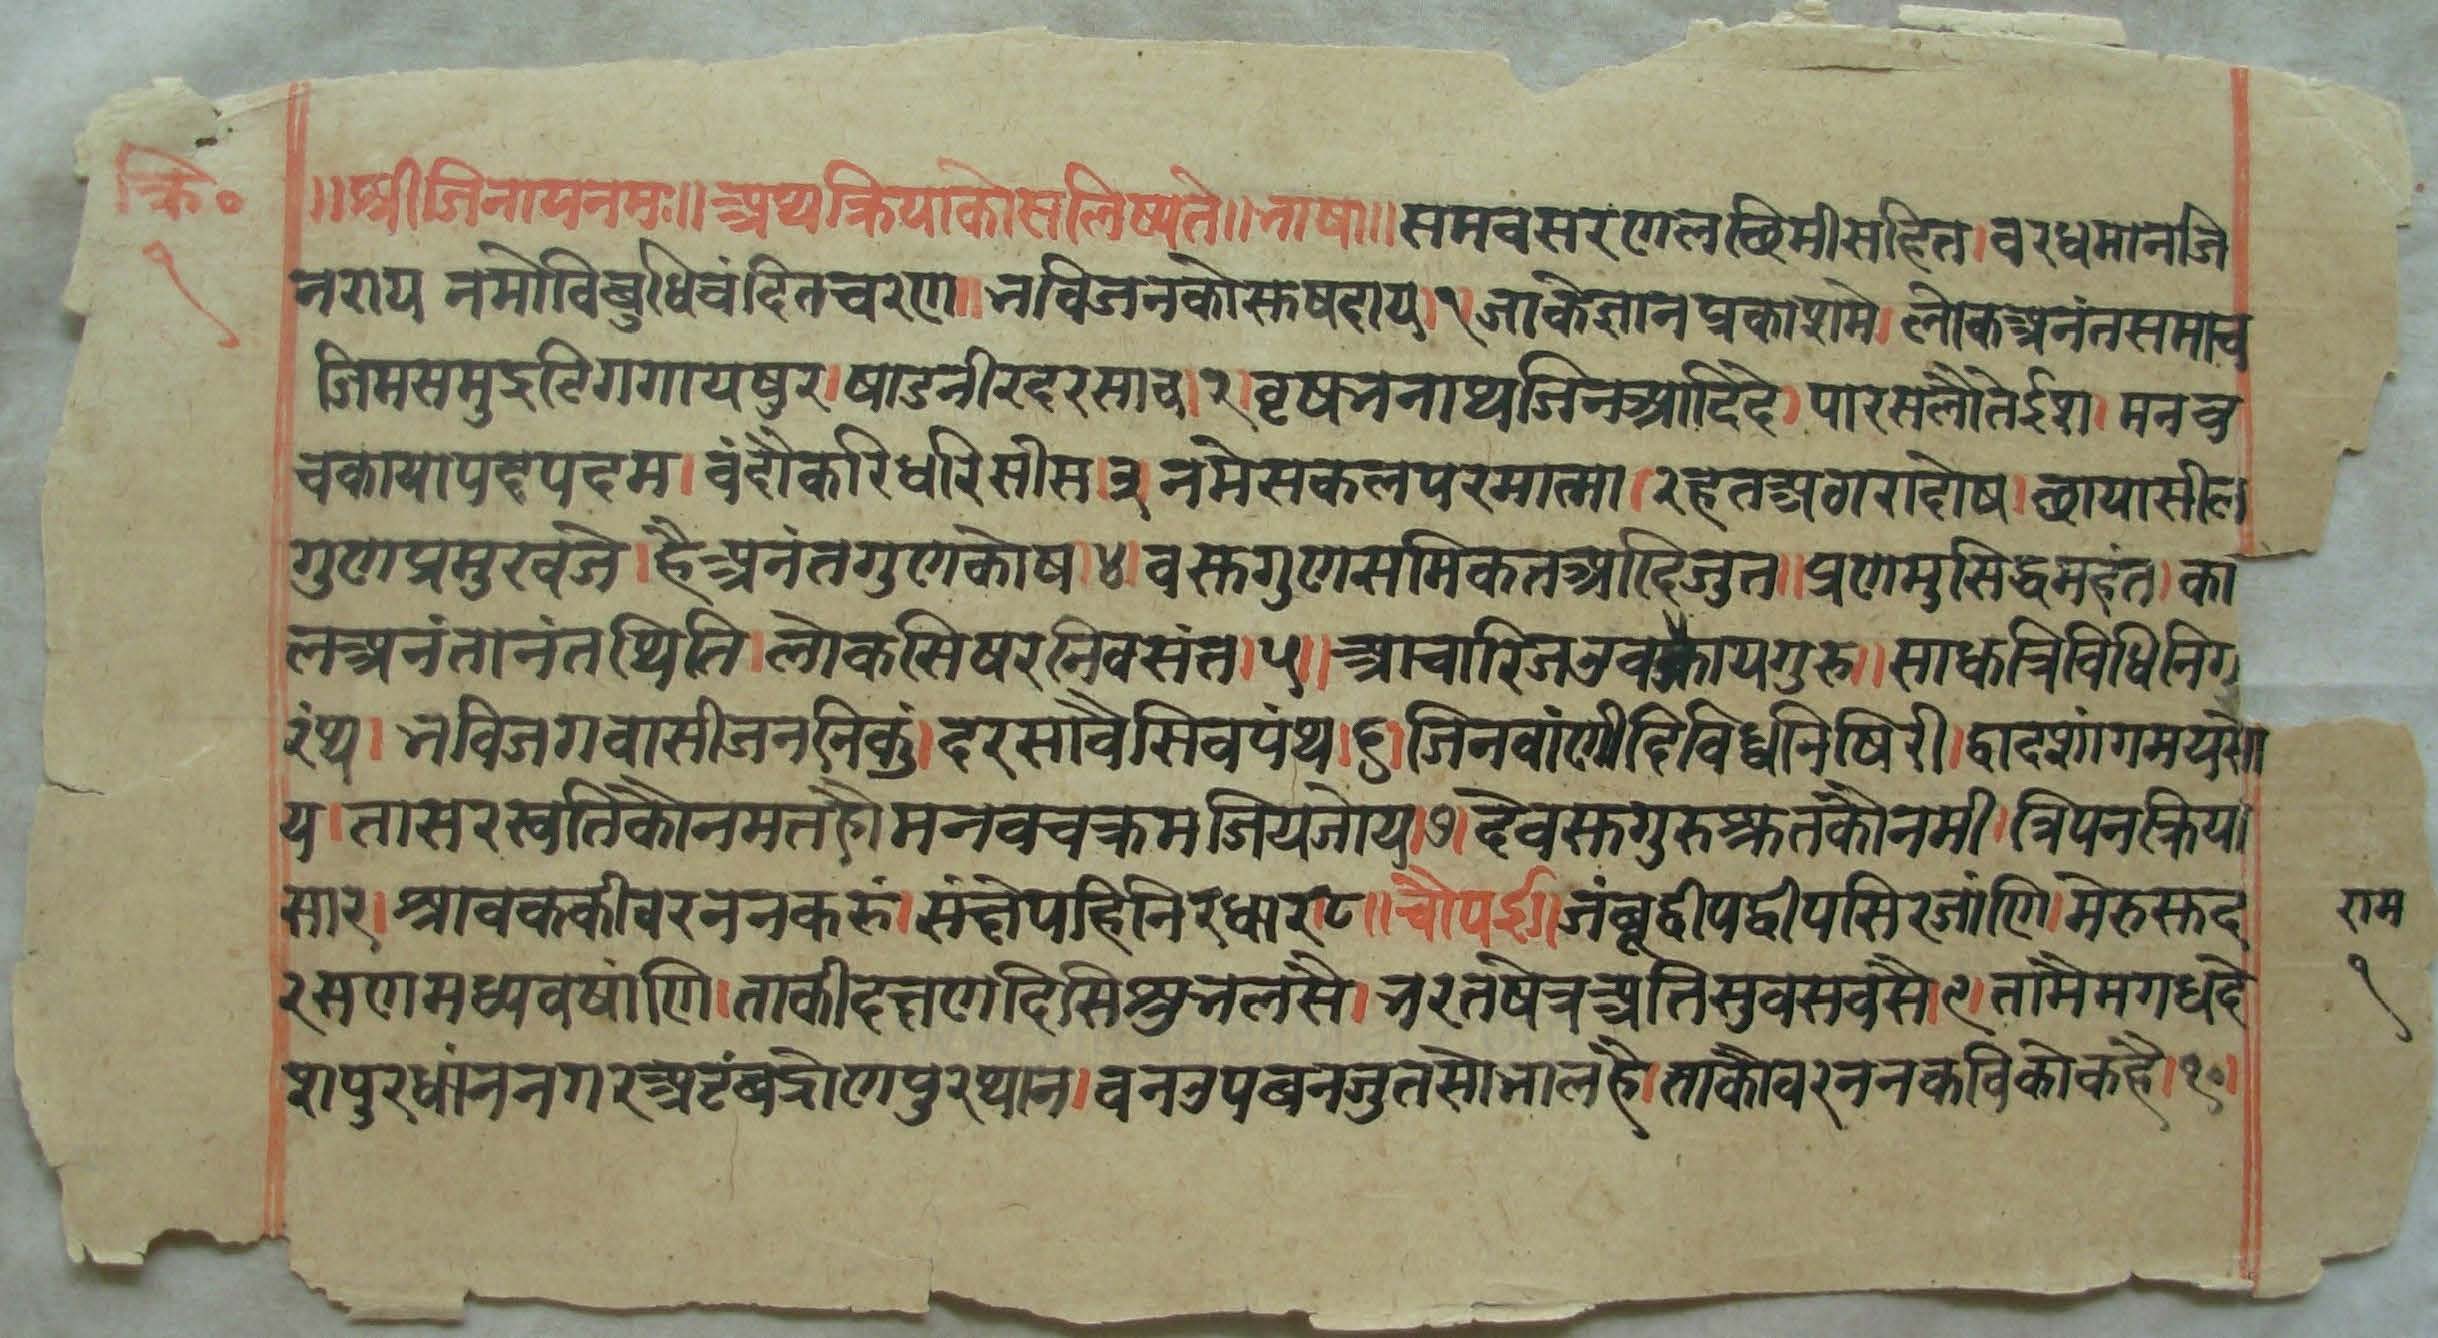 क्रि॰
१
॥श्रीजिनायनमः॥अथक्रियाकोसलिष्यते॥भाषा॥समवसरणलछिमीसहित।वरधमानजि
नराय नमोविबुधिवंदितचरण॥भविजनकोसुषदाय।१।जाकेज्ञानप्रकाशमे।लोकअनंतसमाव
जिमसमुद्रढिगगायषुर।षाडनीरदरसाव।२।वृषभनाथजिनआदिहे।पारसलौतेईश।मनव
चकायापदपदम।वंदौकरिधरिसीस।३।नमेसकलपरमात्मा।रहतअठारादोष।छायासील
गुणप्रमुखजे।हैअनंतगुणकोष।४।वसुगुणसमिकतआदिजुत॥प्रणमुसिद्धमहंत।का
लअनंतानंतथिति।लोकसिषरनिवसंत।५॥आचारिजउवझायगुरु॥साधुत्रिविधिनिग
रंथ।भविजगवासीजननिकुं।दरसावैसिवपंथ।६।जिनवांणीदिविध्वनिषिरी।द्वादशांगमयसो
य।तासरस्वतिकौनमतहौमनवचक्रमजियजोय।७।देवसुगुरुश्रुतकौनमी।त्रिपनक्रिया
सार।श्रावककीवरननकरुं।संक्षेपहिनिरधार८॥चौपई।जंबूद्वीपद्वीपसिरजांणि।मेरुसुद
रसणमध्यवषांणि।ताकीदक्षणदिसिशुभलसै।भरतषेत्रअतिसुवसवसै।९।तामैमगधदे
शपुरधांननगरअटंबद्रोणपुरथान।वनउपबनजुतसोभालहै।ताकौवरननकविकोकहै।१०।
राम
१